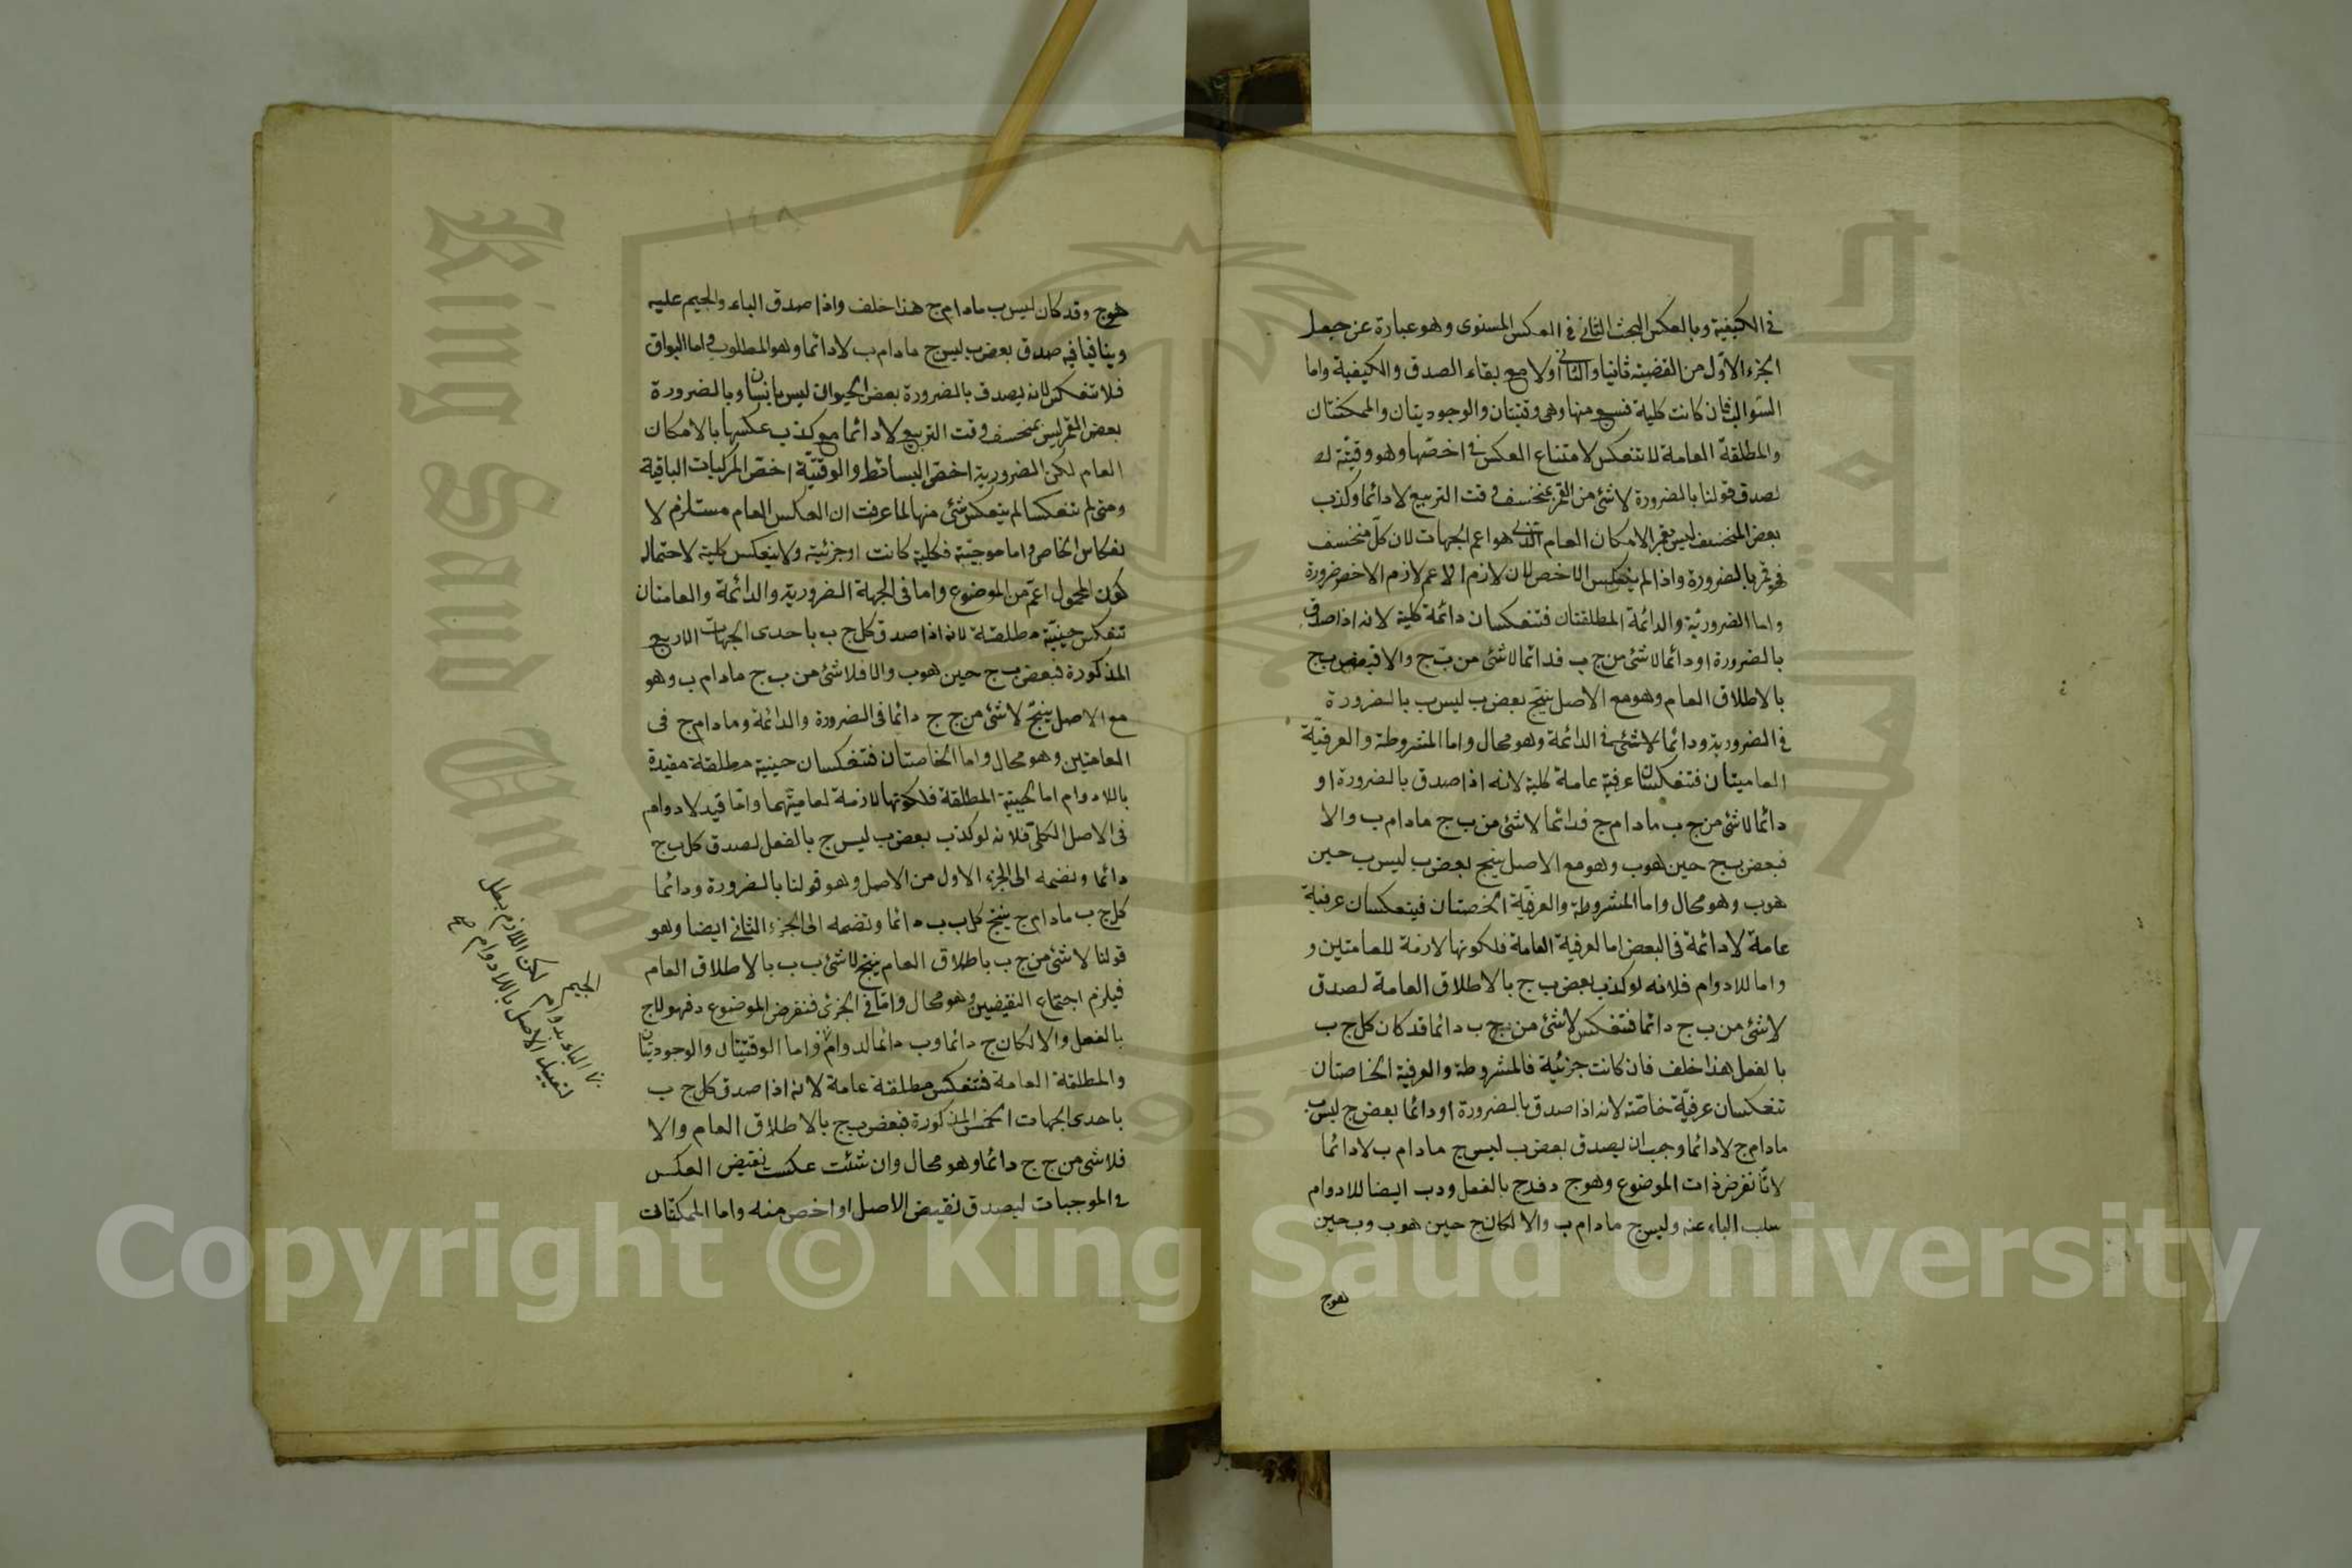 في الكيفية وبالعكس البحث الثاني في العكس المستوى وهو عبارة عن جعل
الجزء الاول من القضية ثانيا والثاني اولا مع بقاء الصدق والكيفية واما
السوالب فان كانت كلية فسبع منها وهى وقتيتان والوجوديتان والممكنتان
والمطلقة العامة لا تنعكس لامتناع العكس في اخصها وهو وقيتة
لصدق قولنا بالضرورة لا شئ من القمر بمنخسف وقت التربيع لا دائما وكذب
بعض المنخسف ليس بقمر الامكان العام الذى هو اعم الجهات لان كل منخسف
فهو قمر بالضرورة واذا لم ينعكس الاخص لان لازم الاعم لازم الاخص ضرورة
واما الضرورية والدائمة المطلقتان فتنعكسان دائمة كلية لانه اذا صدق
بالضرورة او دائما لا شئ من ج ب فدائما لا شئ من ب ج والا فبعض ب ج
بالاطلاق العام وهو مع الاصل ينتج بعض ب ليس ب بالضرورة
في الضرورية ودائما لا شئ في الدائمة وهو محال واما المشروطة والعرفية
العاميتان فتنعكسان عرفية عامة كلية لانه اذا صدق بالضرورة او
دائما لا شئ من ج ب ما دام ج فدائما لا شئ من ب ج ما دام ب والا
فبعض ب ج حين هو ب وهو مع الاصل ينتج بعض ب ليس ب حين
هو ب وهو محال واما المشروطة والعرفية الخصتان فينعكسان عرفية
عامة لا دائمة في البعض اما لعرفية العامة فلكونها لازمة للعامتين و
واما للادوام فلانه لو كذب بعض ب ج بالاطلاق العامة لصدق
لا شئ من ب ج دائما فتنعكس لا شئ من ج ب دائما قد كان كل ج ب
بالفعل هذا خلف فان كانت جزئية فالمشروطة والعرفية الخاصتان
تنعكسان عرفية خاصة لانه اذا صدق بالضرورة او دائما بعض ج ليس ب
ما دام ج لا دائما وجب ان يصدق بعض ب ليس ج ما دام ب لا دائما
لانا نفرض ذات الموضوع وهو ج د فد ج بالفعل ود ب ايضا للادوام
سلب الباء عنه وليس ج ما دام ب والا لكان ج حين هو ب وب حين
هو ج
١٤٨
هو ج وقد كان ليس ب ما دام ج هذا خلف واذا صدق الباء والجيم عليه
وينافيا فيه صدق بعض ب ليس ج ما دام ب لا دائما وهو المطلوب واما البواقى
فلا تنعكس لانه يصدق بالضرورة بعض الحيوان ليس بانسان وبالضرورة
بعض القمر ليس بمنخسف وقت التربيع لا دائما مع كذب عكسها بالامكان
العام لكن الضرورية اخص البسائط والوقتية اخص المركبات الباقية
ومتى لم تنعكسا لم ينعكس شئ منها لما عرفت ان العكس العام مستلزم لا
نعكاس الخاص واما موجبة فكلية كانت او جزئية ولا ينعكس كلية لاحتمال
كون المحمول اعم من الموضوع واما فى الجهة الضرورية والدائمة والعامتان
تنعكس حينية مطلقة لانه اذا صدق كل ج ب باحدى الجهات الاربع
المذكورة فبعض ب ج حين هو ب والا فلا شئ من ب ج ما دام ب وهو
مع الاصل ينتج لا شئ من ج ج دائما فى الضرورة والدائمة وما دام ج فى
العامتين وهو محال واما الخاصتان فتنعكسان حينية مطلقة مقيدة
باللادوام اما الحينية المطلقة فلكونها لازمة لعاميتهما واما قيد لادوام
فى الاصل الكلى فلانه لو كذب بعض ب ليس ج بالفعل لصدق كل ب ج
دائما ونضمه الى الجزء الاول من الاصل وهو قولنا بالضرورة ودائما
كل ج ب ما دام ج ينتج كل ب ب دائما ونضمه الى الجزء الثانى ايضا وهو
قولنا لا شئ من ج ب باطلاق العام ينتج لا شئ ب ب بالاطلاق العام
فيلزم اجتماع النقيضين وهو محال واما فى الجزئى فنفرض الموضوع د فهو لا ج
بالفعل والا لكان ج دائما وب دائما لدوام واما الوقتيتان والوجوديتان
والمطلقة العامة فتنعكس مطلقة عامة لانه اذا صدق كل ج ب
باحدى الجهات الخمس المذكورة فبعض ب ج بالاطلاق العام والا
فلا شئ من ج ج دائما وهو محال وان شئت عكست نقيض العكس
فى الموجبات ليصدق نقيض الاصل او اخص منه واما الممكنتان
الجيم
الباء بدوام لكن اللازم بطل
الاصل باللادوام
King Saud Univ
1957
Copyright © King Saud University